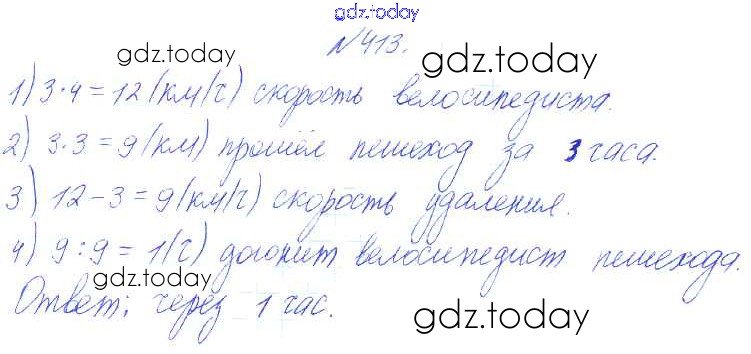 gdz.today
gdz.today №413. gdz.today
1) 3·4=12 (км/ч) скорость велосипедиста.
2) 3·3=9 (км) прошёл пешеход за 3 часа.
gdz.today gdz.today
3) 12-3=9 (км/ч) скорость удаления.
4) 9:9=1 (ч) догонит велосипедист пешехода.
gdz.today
Ответ: через 1 час. gdz.today